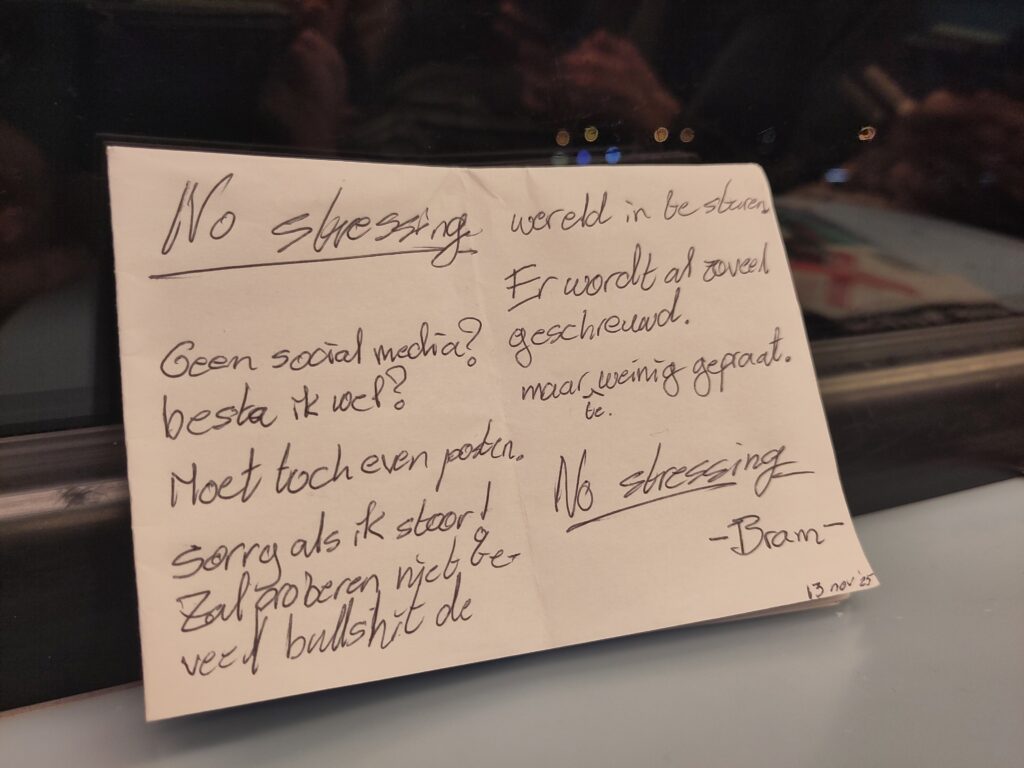 No stressing
Geen social media?
besta ik wel?
Moet toch even posten.
sorry als ik stoor!
Zal proberen niet te-
veel bullshit de
wereld in te sturen
Er wordt al zoveel
geschreuwd.
maar te weinig gepraat.
No stressing
-Bram-
13 nov '25